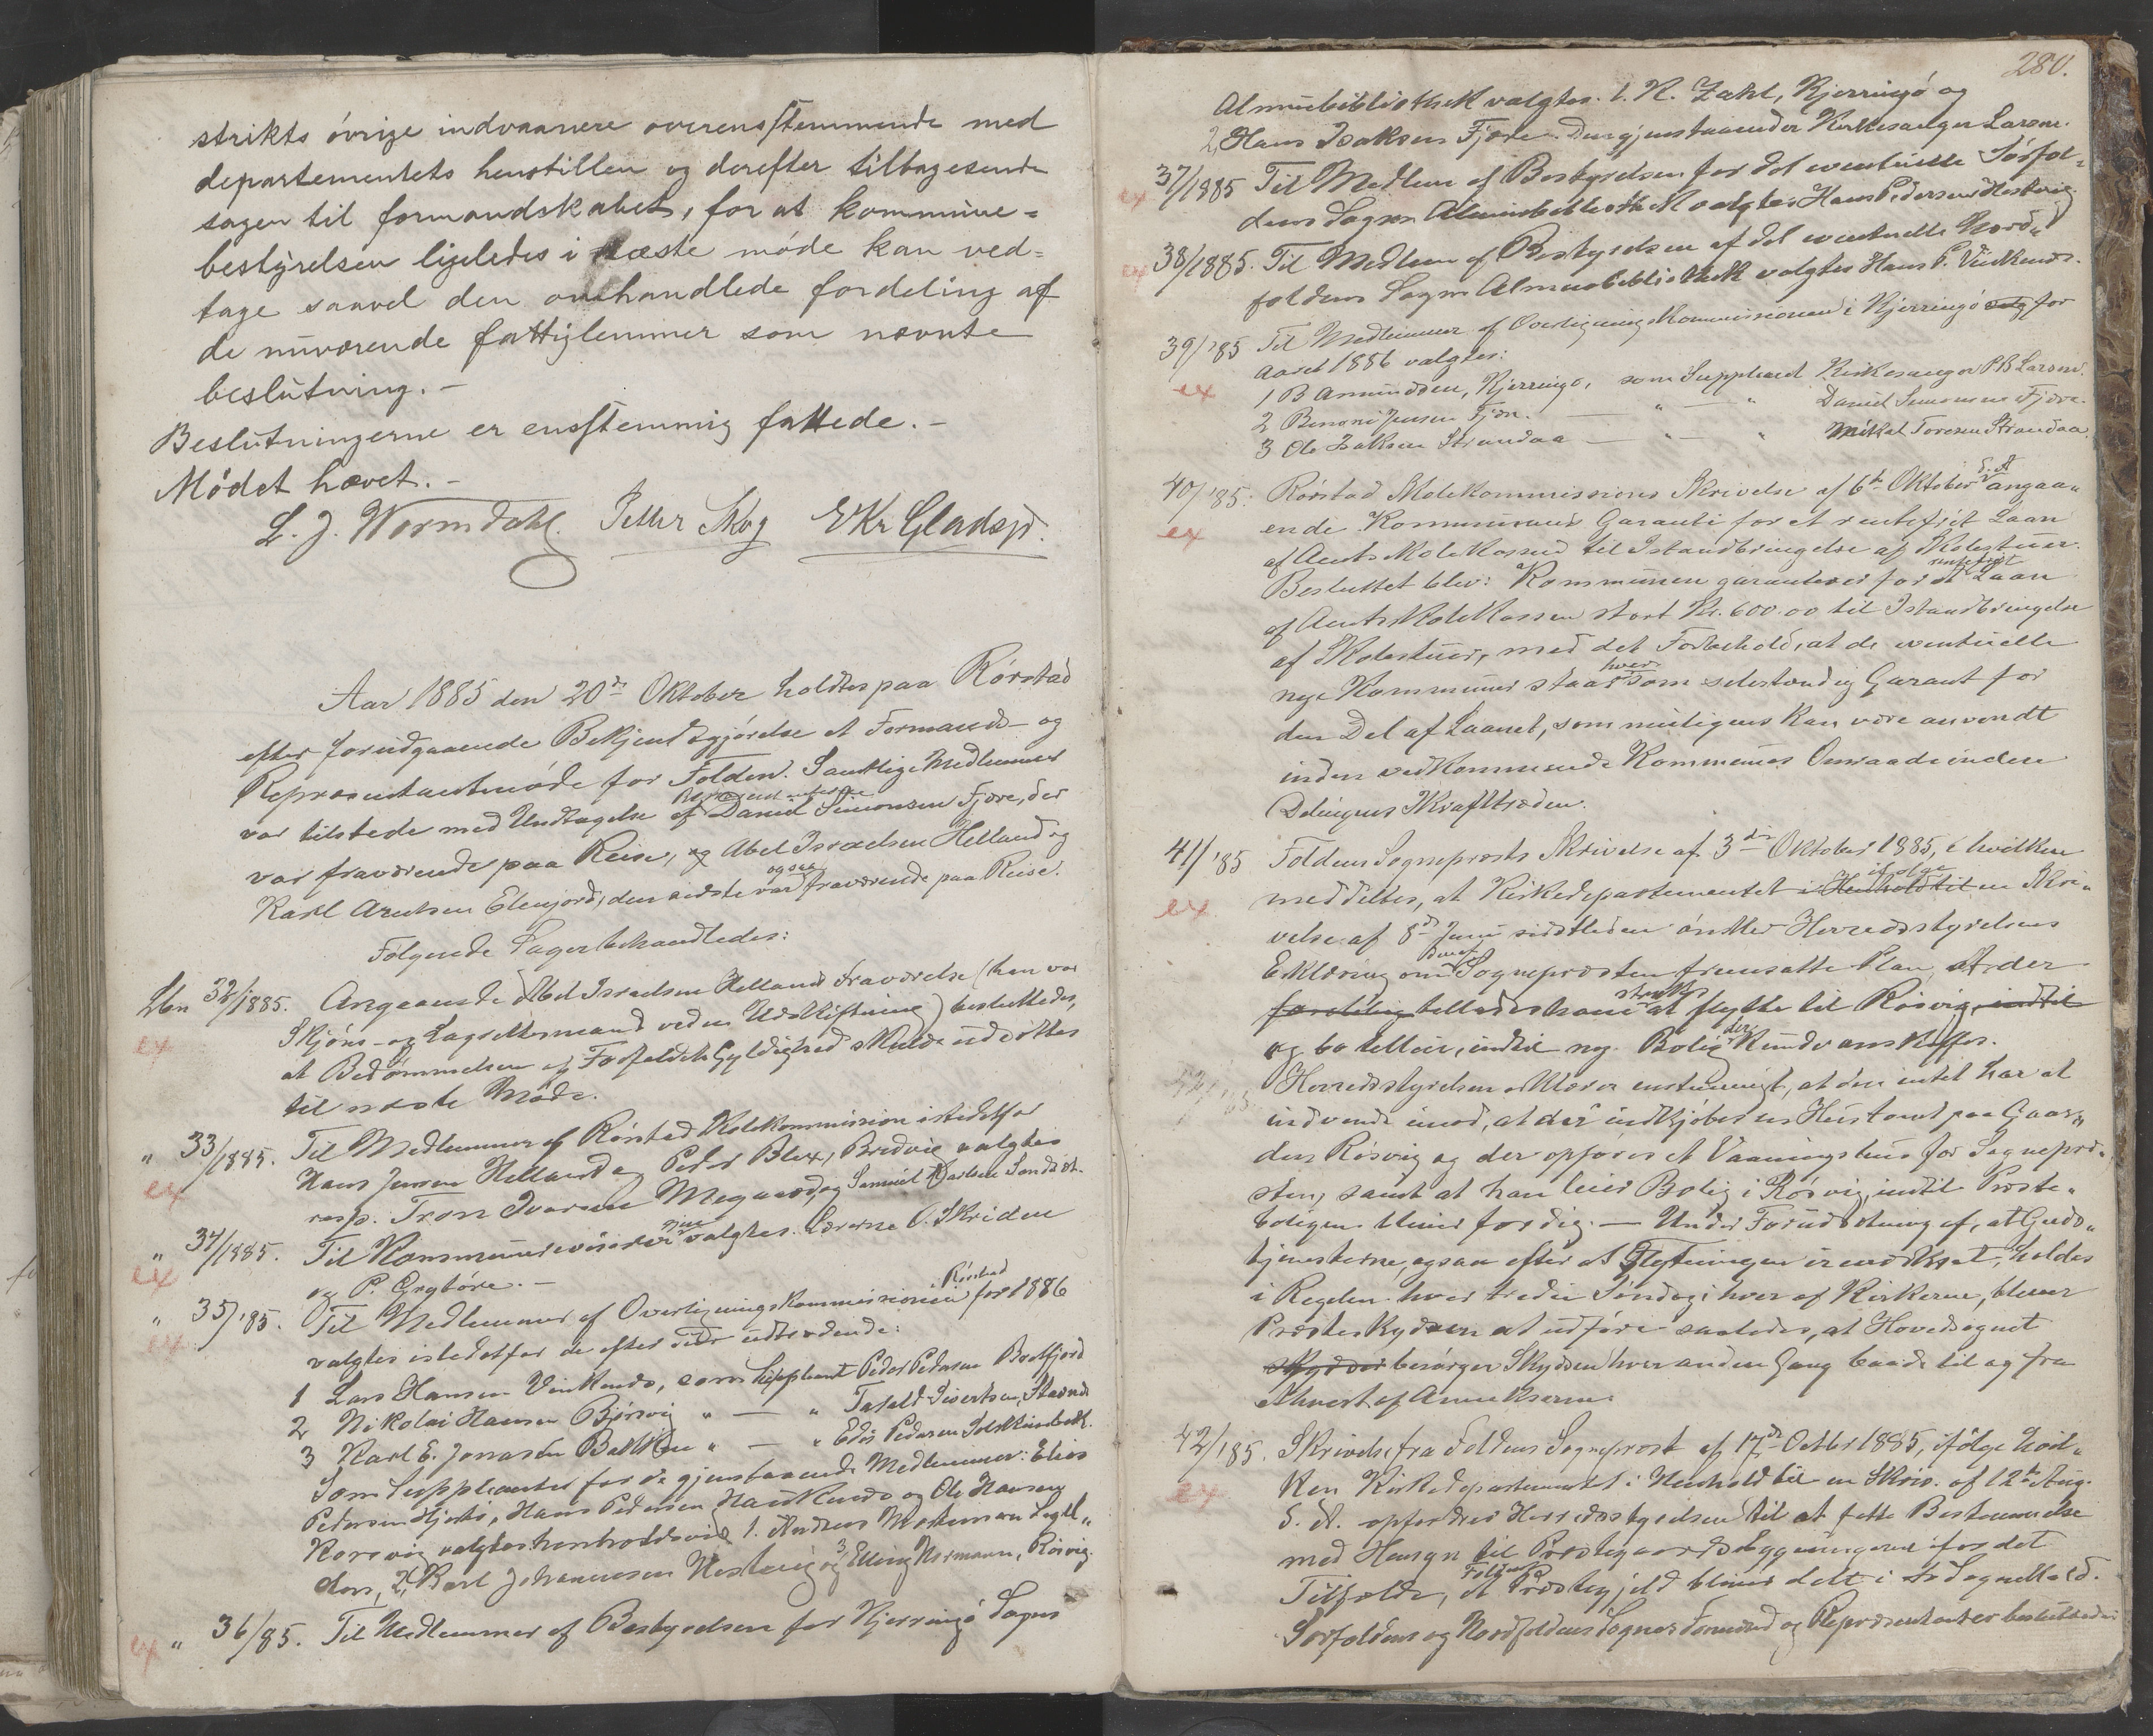 strikts övrige indvaanere overensstemmende med
departementets henstillen og derefter tilbagesende
sagen til formandskabet, for at kommune=
bestyrelsen ligeledes i næste möde kan ved=
tage saavel den omhandlede fordeling af
de nuværende fattiglemmer som nævnte
beslutning. –
Beslutningerne er enstemmig fattede. –
Mödet hævet. –
L. J. Wormdahl. Petter Skog EKr Gladsjö.
Aar 1885 den 20de Oktober holdtes paa Rörstad
efter forudgaaende Bekjendtgjörelse et Formands- og
Repræsentantmöde for Folden. Samtlige Medlemmer
var tilstede med Undtagelse af Repræsentanterne Daniel Simonsen Fjære, der
var fraværende paa Reise, og Abel Israelsen Helland og
Karl Arntsen Elvefjord, den sidste var ogsaa fraværende paa Reise.
Fölgende Sager behandledes:
Lbn 32/1885. Angaaende Abel Israelsen Hellands Fraværelse (han var
ex Skjöns- og Lagrettesmand ved en Udskiftning) besluttedes,
at Bedömmelsen af Forfaldets Gyldighed skulde udsættes
til næste Möde.
" 33/1885. Til Medlemmer af Rörstad Skolekommission istedetfor
ex Hans Jensen Helland og Peder Blix, Bredvig valgtes
resp. Tron Ivarsen Megaard og Samuel Karlsen Sandset.
" 34/1885. Til Kommunerevisorer valgtes Lærerne O. Skriden
ex og P. Grytöre. –
" 35/'85. Til Medlemmer af Overligningskommissionen i Rörstad for 1886
ex valgtes istedetfor de efter Tur udtrædende:
1 Lars Hansen Vinkends, som Suppleant Peder Pedersen Botfjord
2 Nikolai Hansen Björsvig " — " Tarald Sivertsen, Stavnes
3 Karl E. Jonassen Bakken " — " Edis Pedersen Solskinsbakk.
Som Suppleanter for de gjenstaaende Medlemmer: Elias
Pedersen Hjertö, Hans Pedersen Haukends og Ole Hansen
Korsvig valgtes henholdsvis 1. Andreas Mortensen Lagd„
don, 2, Karl Johannesen Nesterig og 3, Elling Normann, Rösvig.
ex " 36/85. Til Medlemmer af Bestyrelsen for Kjerringö Sogns
280.
Almuebibliothek valgtes. 1. K. Zahl, Kjerringö og
2, Hans Isaksen Fjære. Den gjenstaaende er Kirkesanger Larsen.
ex 37/1885 Til Medlem af Bestyrelsen for det eventuelle Sörfol=
dens Sogns Almuebibliothek valgtes Hans Pedersen Nestevig
ex 38/1885. Til Medlem af Bestyrelsen af det eventuelle Nord„
foldens Sogns Almuebibliothek valgtes Hans P. Vinkends.
39/'85 Til Medlemmer af Overligningskommissionen i Kjerringö for
ex Aaret 1886 valgtes:
1 B Amundsen, Kjerringö, som Suppleant Kirkesanger P B Larsen.
2 Benoni Jensen Fjære. — " — " Daniel Simonsen Fjære.
3 Ole Isaksen Strandaa — " — " Mikal Toresen Strandaa.
40/'85. Rörstad Skolekommissions Skrivelse af 6te Oktober d. A angaa„
ex ende Kommunens Garanti for et rentefrit Laan
af Amtsskolekassen til Istandbringelse af Skolestuer.
Besluttet blev: Kommunen garanterer for et rentefrit Laan
af Amtsskolekassen stort Kr. 600.00 til Istandbringelse
af Skolestuer, med det Forbehold, at de eventuelle
nye Kommuner staar hver som selvstændig Garant for
den Del af Laanet, som muligens kan være anvendt
inden vedkommende Kommunes Omraade inden
Delingens Ikrafttræden.
41/'85 Foldens Sogneprests Skrivelse af 3die Oktober 1885, i hvilken
ex. meddeltes, at Kirkedepartementet i Henhold til ifölge en Skri„
velse af 8de Juni sidstleden önsker Herredsstyrelsens
Erklæring om den af Sognepresten fremsatte Plan, at der
foreløbig tillades ham straks at flytte til Rösvig, indtil
og bo tilleie, indtil ny Bolig der kunde anskaffes.
Herredsstyrelsen erklærer enstemmigt, at den intet har at
indvende imod, at der indkjöbes en Hustomt paa Gaar„
den Rösvig og der opföres et Vaaningshus for Sognepre„
sten, samt at han leier Bolig i Rösvig, indtil Preste„
boligen bliver færdig. — Under Forudsætning af, at Guds„
tjenesterne, ogsaa efter at Flytningen er iværksat, holdes
i Regelen hver tredie Söndag i hver af Kirkerne, bliver
Presteskydsen at udföre saaledes, at Hovedsognet
skydser besörger Skydsen hver anden Gang baade til og fra
ethvert af Annekserne.
42/'85. Skrivelse fra Foldens Sogneprest af 17de Octbr 1885, ifölge hvil„
ex ken Kirkedepartementet i Henhold til en Skriv. af 12te Aug.
d. A. opfordrer Herredsstyrelsen til at fatte Bestemmelse
med Hensyn til Prestegaardsbygningerne for det
Tilfælde, at Foldens Prestegjeld bliver delt i to Sognekald.
Sörfoldens og Nordfoldens Sognes Formænd og Repræsentanter besluttede: